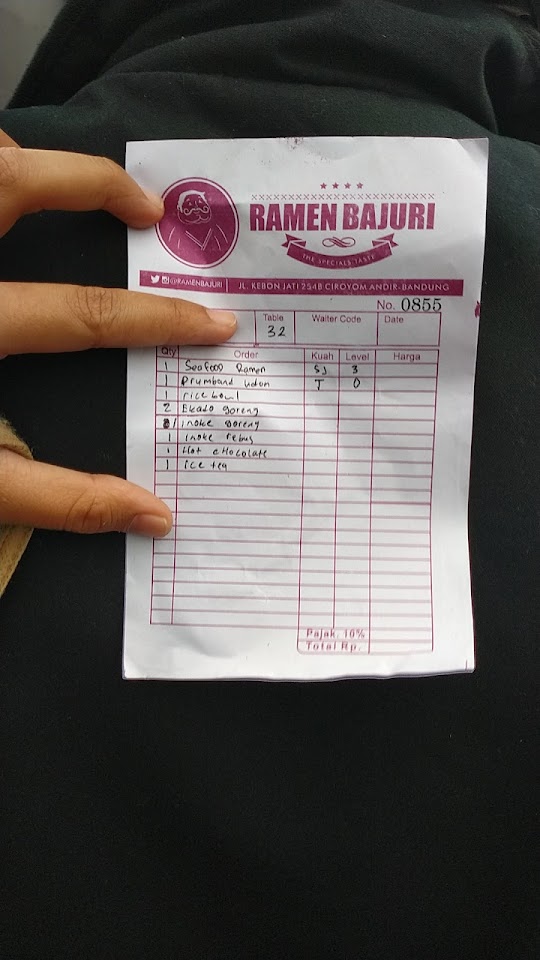 RAMEN BAJURI
THE SPECIALS TASTE
@RAMENBAJURI JL. KEBON JATI 254B CIROYOM ANDIR-BANDUNG
No. 0855
Table Waiter Code Date
32
Qty Order Kuah Level Harga
1 Seafood Ramen SJ 3
1 Drumband udon T 0
1 rice bowl
2 Ekado goreng
1 inoke goreng
1 inoke rebus
1 Hot cHocolate
1 ice tea
Pajak. 10%
Total Rp.